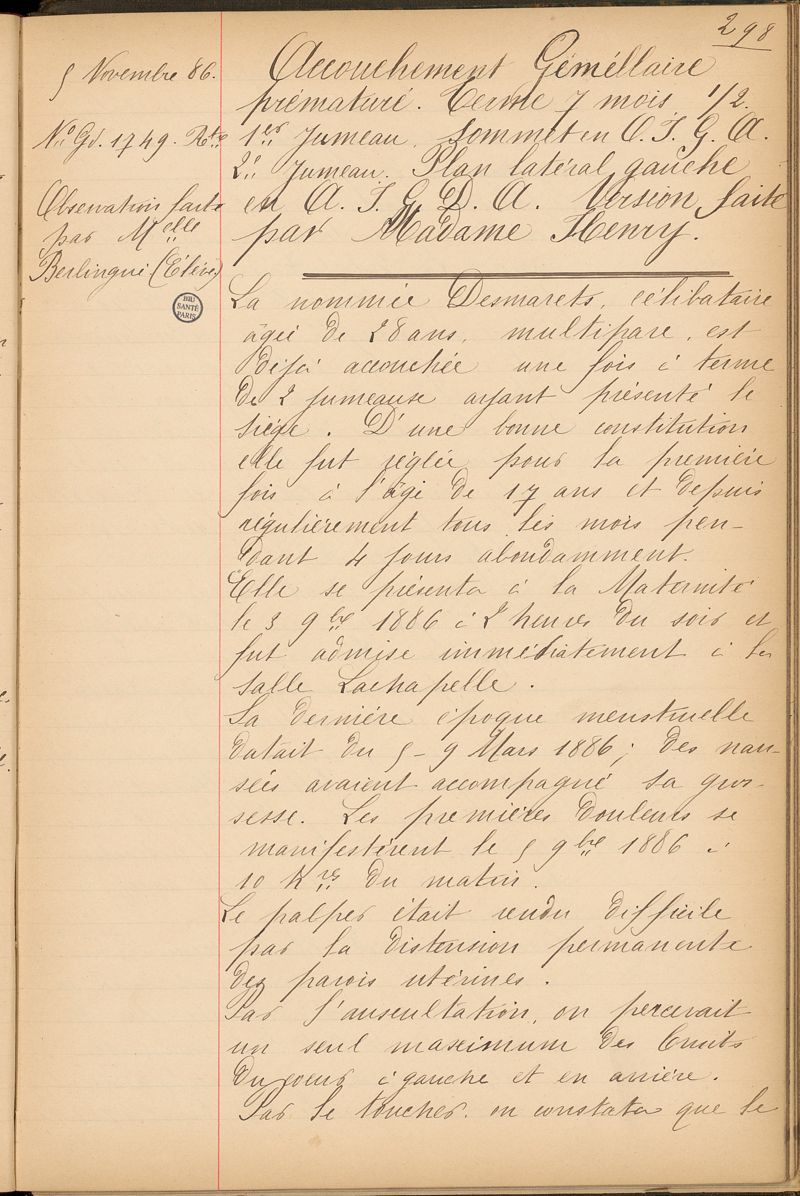 298
5 Novembre 86.
N° Gd. 1749. Rte
Observation faite
par Melle
Berlingué (Elève)
BIU
SANTÉ
PARIS
Accouchement Géméllaire
prématuré. Terme 7 mois 1/2.
1er Jumeau. Sommet en O. I. G. A.
2e Jumeau. Plan latéral gauche
en A. I. G. D. A. Version faite
par Madame Henry.
La nommée Desmarets, célibataire
âgée de 28 ans, multipare, est
déjà accouchée une fois à terme
de 2 jumeause ayant présenté le
siège. D'une bonne constitution
elle fut réglée pour la première
fois à l'âge de 17 ans et depuis
régulièrement tous les mois pen-
dant 4 jours abondamment.
Elle se présenta à la Maternité
le 5 9bre 1886 à 2 heures du soir et
fut admise immédiatement à la
salle Lachapelle.
Sa dernière époque menstruelle
datait du 5-9 Mars 1886; des nau-
sées avaient accompagné sa gros-
sesse. Les premières douleurs se
manifestèrent le 5 9bre 1886 à
10 hres du matin.
Le palper était rendu difficile
par la distension permanente
des parois utérines.
Par l'auscultation, on percevait
un seul maximum des bruits
du coeur à gauche et en arrière.
Par le toucher. on constata que le